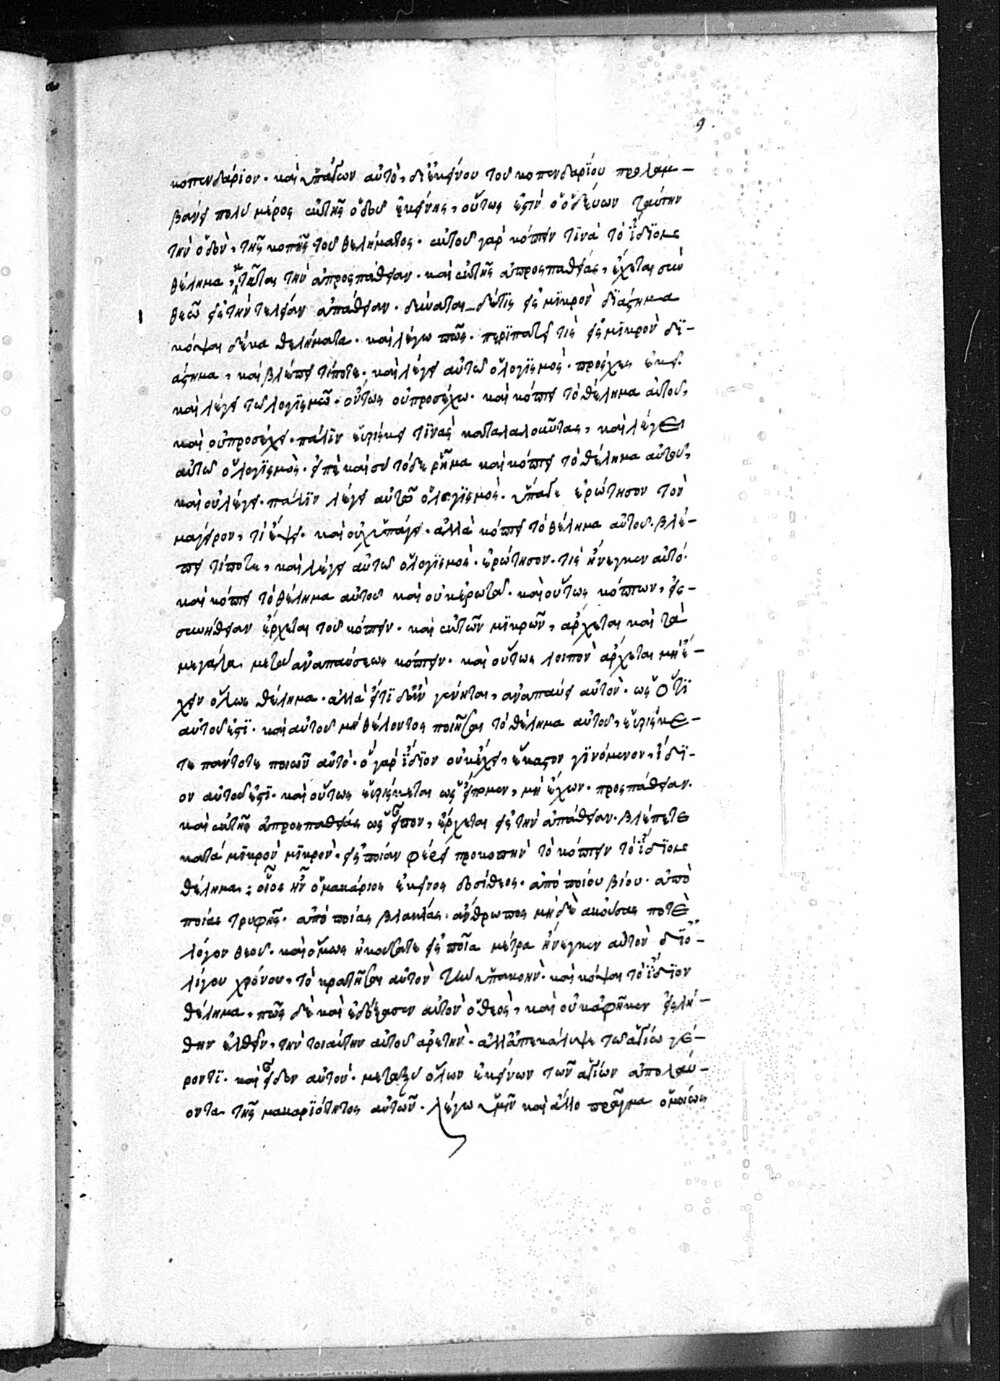 9.
κοπενδαρίον· καὶ ὑπάγων αὐτὸ, δι' ἐκείνου του κοπενδαρΐου προλαμ-
βάνει πολὺ μέρος αὐτῆς ὁδοῦ ἐκείνης, οὕτως ἐστὶν ὁ ὁδεύων ταύτην
τὴν ὁδὸν, τῆς κοπῆς τοῦ θελήματος· αὐτοῦ γὰρ κόπτειν τινὰ τὸ ἴδϊον
θέλημα, κτᾶται τὴν ἀπροσπάθειαν· καὶ αὐτῆς ἀπροσπαθείας, ἔρχεται σὺν
θεῶ εἰς τὴν τελείαν ἀπάθειαν· δύναται δέ τις εἰς μϊκρὸν δϊάστημα
κόψαι δέκα θελήματα· καὶ λέγω πῶς· περϊπατεῖ τις εἰς μϊκρὸν δϊ-
άστημα, καὶ βλέπει τίποτε· καὶ λέγει αὐτῶ ὁ λογϊσμός· πρόσχες ἐκεῖ·
καὶ λέγει τῶ λογϊσμῶ· ὄντως οὐ προσέχω· καὶ κόπτει τὸ θέλημα αὐτοῦ,
καὶ οὐ προσέχει· πάλϊν εὑρίσκει τϊνὰς καταλαλοῦντας, καὶ λέγει
αὐτῶ ὁ λογϊσμός· εἰπὲ καὶ σὺ τόδε ῥῆμα καὶ κόπτει τὸ θέλημα αὐτοῦ,
καὶ οὐ λέγει· πάλϊν λέγει αὐτῶ ὁ λογϊσμός· ὕπαγε ἐρώτησον τὸν
μάγειρον, τί ἕψει· καὶ οὐχ ὑπάγει· ἀλλὰ κόπτει τὸ θέλημα αὐτοῦ· βλέ-
πει τίποτε, καὶ λέγει αὐτῶ ὁ λογϊσμός· ἐρώτησον· τίς ἤνεγκεν αὐτό·
καὶ κόπτει τὸ θέλημα αὐτοῦ καὶ οὐκ ἐρωτᾶ· καὶ οὕτως κόπτων, εἰς
συνήθειαν ἔρχεται τοῦ κόπτειν· καὶ αὐτῶν μϊκρῶν, ἄρχεται καὶ τὰ
μεγάλα μετὰ ἀναπαύσεως κόπτειν· καὶ οὕτως λοιπὸν ἄρχεται μὴ ἔ-
χειν ὅλως θέλημα· ἀλλὰ εἴ τι δἂν γένηται, ἀναπαύει αὐτὸν· ὡς ὅτϊ
αὐτοῦ ἐστϊ· καὶ αὐτοῦ μὴ θέλοντος ποιῆσαι τὸ θέλημα αὐτοῦ, εὑρίσκε-
ται πάντοτε ποιῶν αὐτό· ὁ γὰρ ἴδϊον οὐκ ἔχει, ἕκαστον γϊνόμενον, ἴδϊ-
ον αὐτοῦ ἐστϊ· καὶ οὕτως εὑρίσκεται ὡς εἴπομεν, μὴ ἔχων προσπάθειαν·
καὶ αὐτῆς ἀπροσπαθείας ὡς εἶπον, ἔρχεται εἰς τὴν ἀπάθειαν· βλέπετε
κατὰ μϊκρὸν μϊκρὸν· εἰς ποίαν φέρει προκοπὴν τὸ κόπτειν τὸ ἴδιον
θέλημα; οἷος ἦν ὁ μακάριος ἐκεῖνος δοσίθεος· ἀπὸ ποίου βίου· ἀπὸ
ποίας τρυφῆς· ἀπὸ ποίας βλακείας· ἄνθρωπος μηδὲ ἀκούσας ποτὲ
λόγον θεοῦ· καὶ ὅμως ἠκούσατε εἰς ποῖα μέτρα ἤνεγκεν αὐτὸν δϊ' ὀ-
λίγου χρόνου, τὸ κρατῆσαι αὐτὸν τὴν ὑπακοὴν· καὶ κόψαι τὸ ἴδϊον
θέλημα, πῶς δὲ καὶ ἐδόξασεν αὐτὸν ὁ θεὸς, καὶ οὐκ ἀφῆκεν εἰς λή-
θην ἐλθεῖν, τὴν τοιαύτην αὐτοῦ ἀρετὴν· ἀλλ' ἀπεκάλυψε τῶ ἁγίω γέ-
ροντϊ· καὶ εἶδεν αὐτὸν· μεταξὺ ὅλων ἐκείνων τῶν ἁγίων ἀπολαύ-
οντα τῆς μακαρϊότητος αὐτῶν· λέγω ὑμῖν καὶ ἄλλο πρᾶγμα ὁμοίως